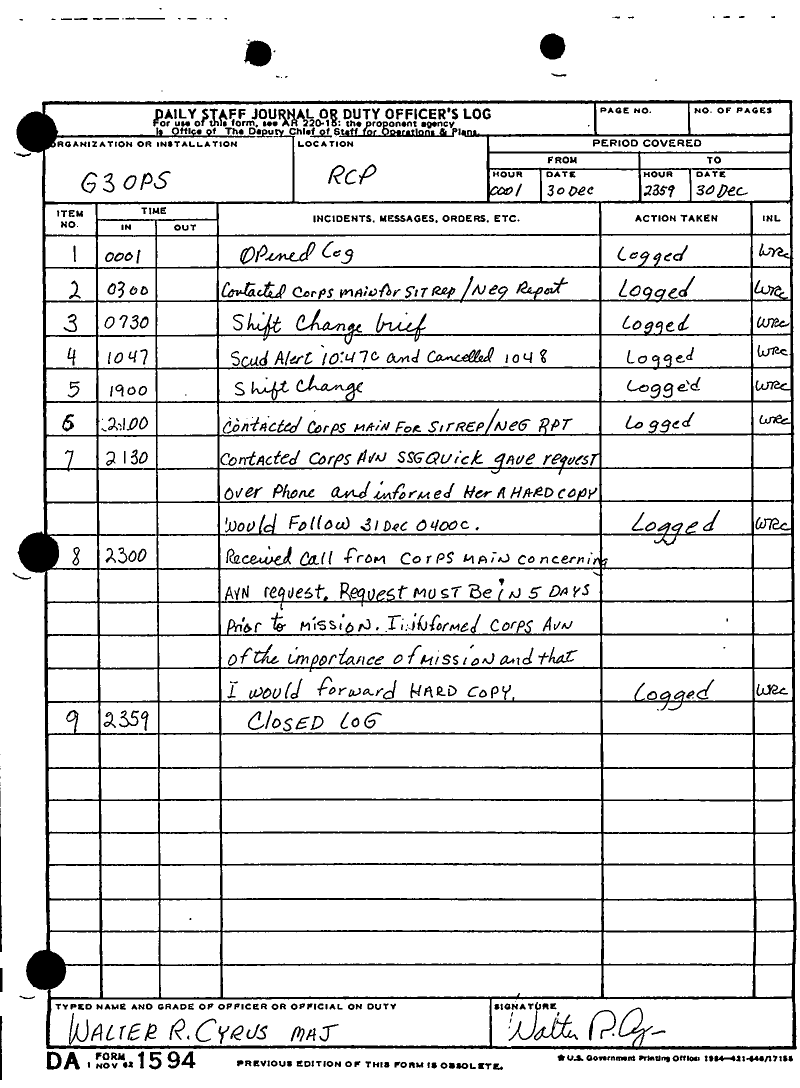 DAILY STAFF JOURNAL OR DUTY OFFICER'S LOG
For use of this form, see AR 220-15: the proponent agency
is Office of The Deputy Chief of Staff for Operations & Plans.
PAGE NO.
NO. OF PAGES
ORGANIZATION OR INSTALLATION
G3 OPS
LOCATION
RCP
PERIOD COVERED
FROM
TO
HOUR
0001
DATE
30 Dec
HOUR
2359
DATE
30 Dec
ITEM NO.
TIME
IN
OUT
INCIDENTS, MESSAGES, ORDERS, ETC.
ACTION TAKEN
INL
1 0001 OPened Log Logged WRC
2 0300 Contacted Corps MAIN for SITREP/Neg Report Logged WRC
3 0730 Shift Change brief Logged WRC
4 1047 Scud Alert 10:47C and Cancelled 1048 Logged WRC
5 1900 Shift Change Logged WRC
6 2100 CONTACTED CORPS MAIN FOR SITREP/NEG RPT Logged WRC
7 2130 CONTACTED CORPS AVN SSG QUICK gave request
over Phone and informed Her A HARD COPY
Would Follow 31 Dec 0400C. Logged WRC
8 2300 Received Call from CORPS MAIN concerning
AVN request. Request MUST Be iN 5 DAYS
Prior to MISSION. I informed CORPS AVN
of the importance of MISSION and that
I would forward HARD COPY. Logged WRC
9 2359 CLOSED LOG
TYPED NAME AND GRADE OF OFFICER OR OFFICIAL ON DUTY
WALTER R. CYRUS MAJ
SIGNATURE
Walter R. Cy
DA FORM 1594
1 NOV 62
PREVIOUS EDITION OF THIS FORM IS OBSOLETE.
U.S. Government Printing Office: 1984-421-646/17155